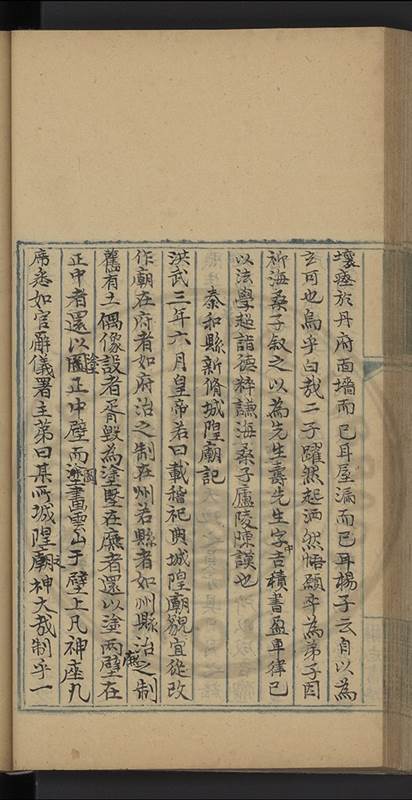 壞瘞於丹府面墻而已耳屋漏而已耳楊子云自以為
玄可也烏乎白哉二子躍然起洒然悟願卒為弟子因
祈海桑子叙之以為先生壽先生字中吉積書盈車律己
以法學超詣德粹謙海桑子廬陵陳謨也
泰和縣新脩城隍廟記
洪武三年六月皇帝若曰載稽祀典城隍廟貌宜從改
作廟在府者如府治之制在州若縣者如州縣治之制
舊有土偶像設者胥毀為塗墍在廡者還以塗兩廡壁在
正中者還以塗正中壁而圖畫雲山于壁上凡神座几
席悉如官廨儀署主第曰某所城隍廟之神大哉制乎一